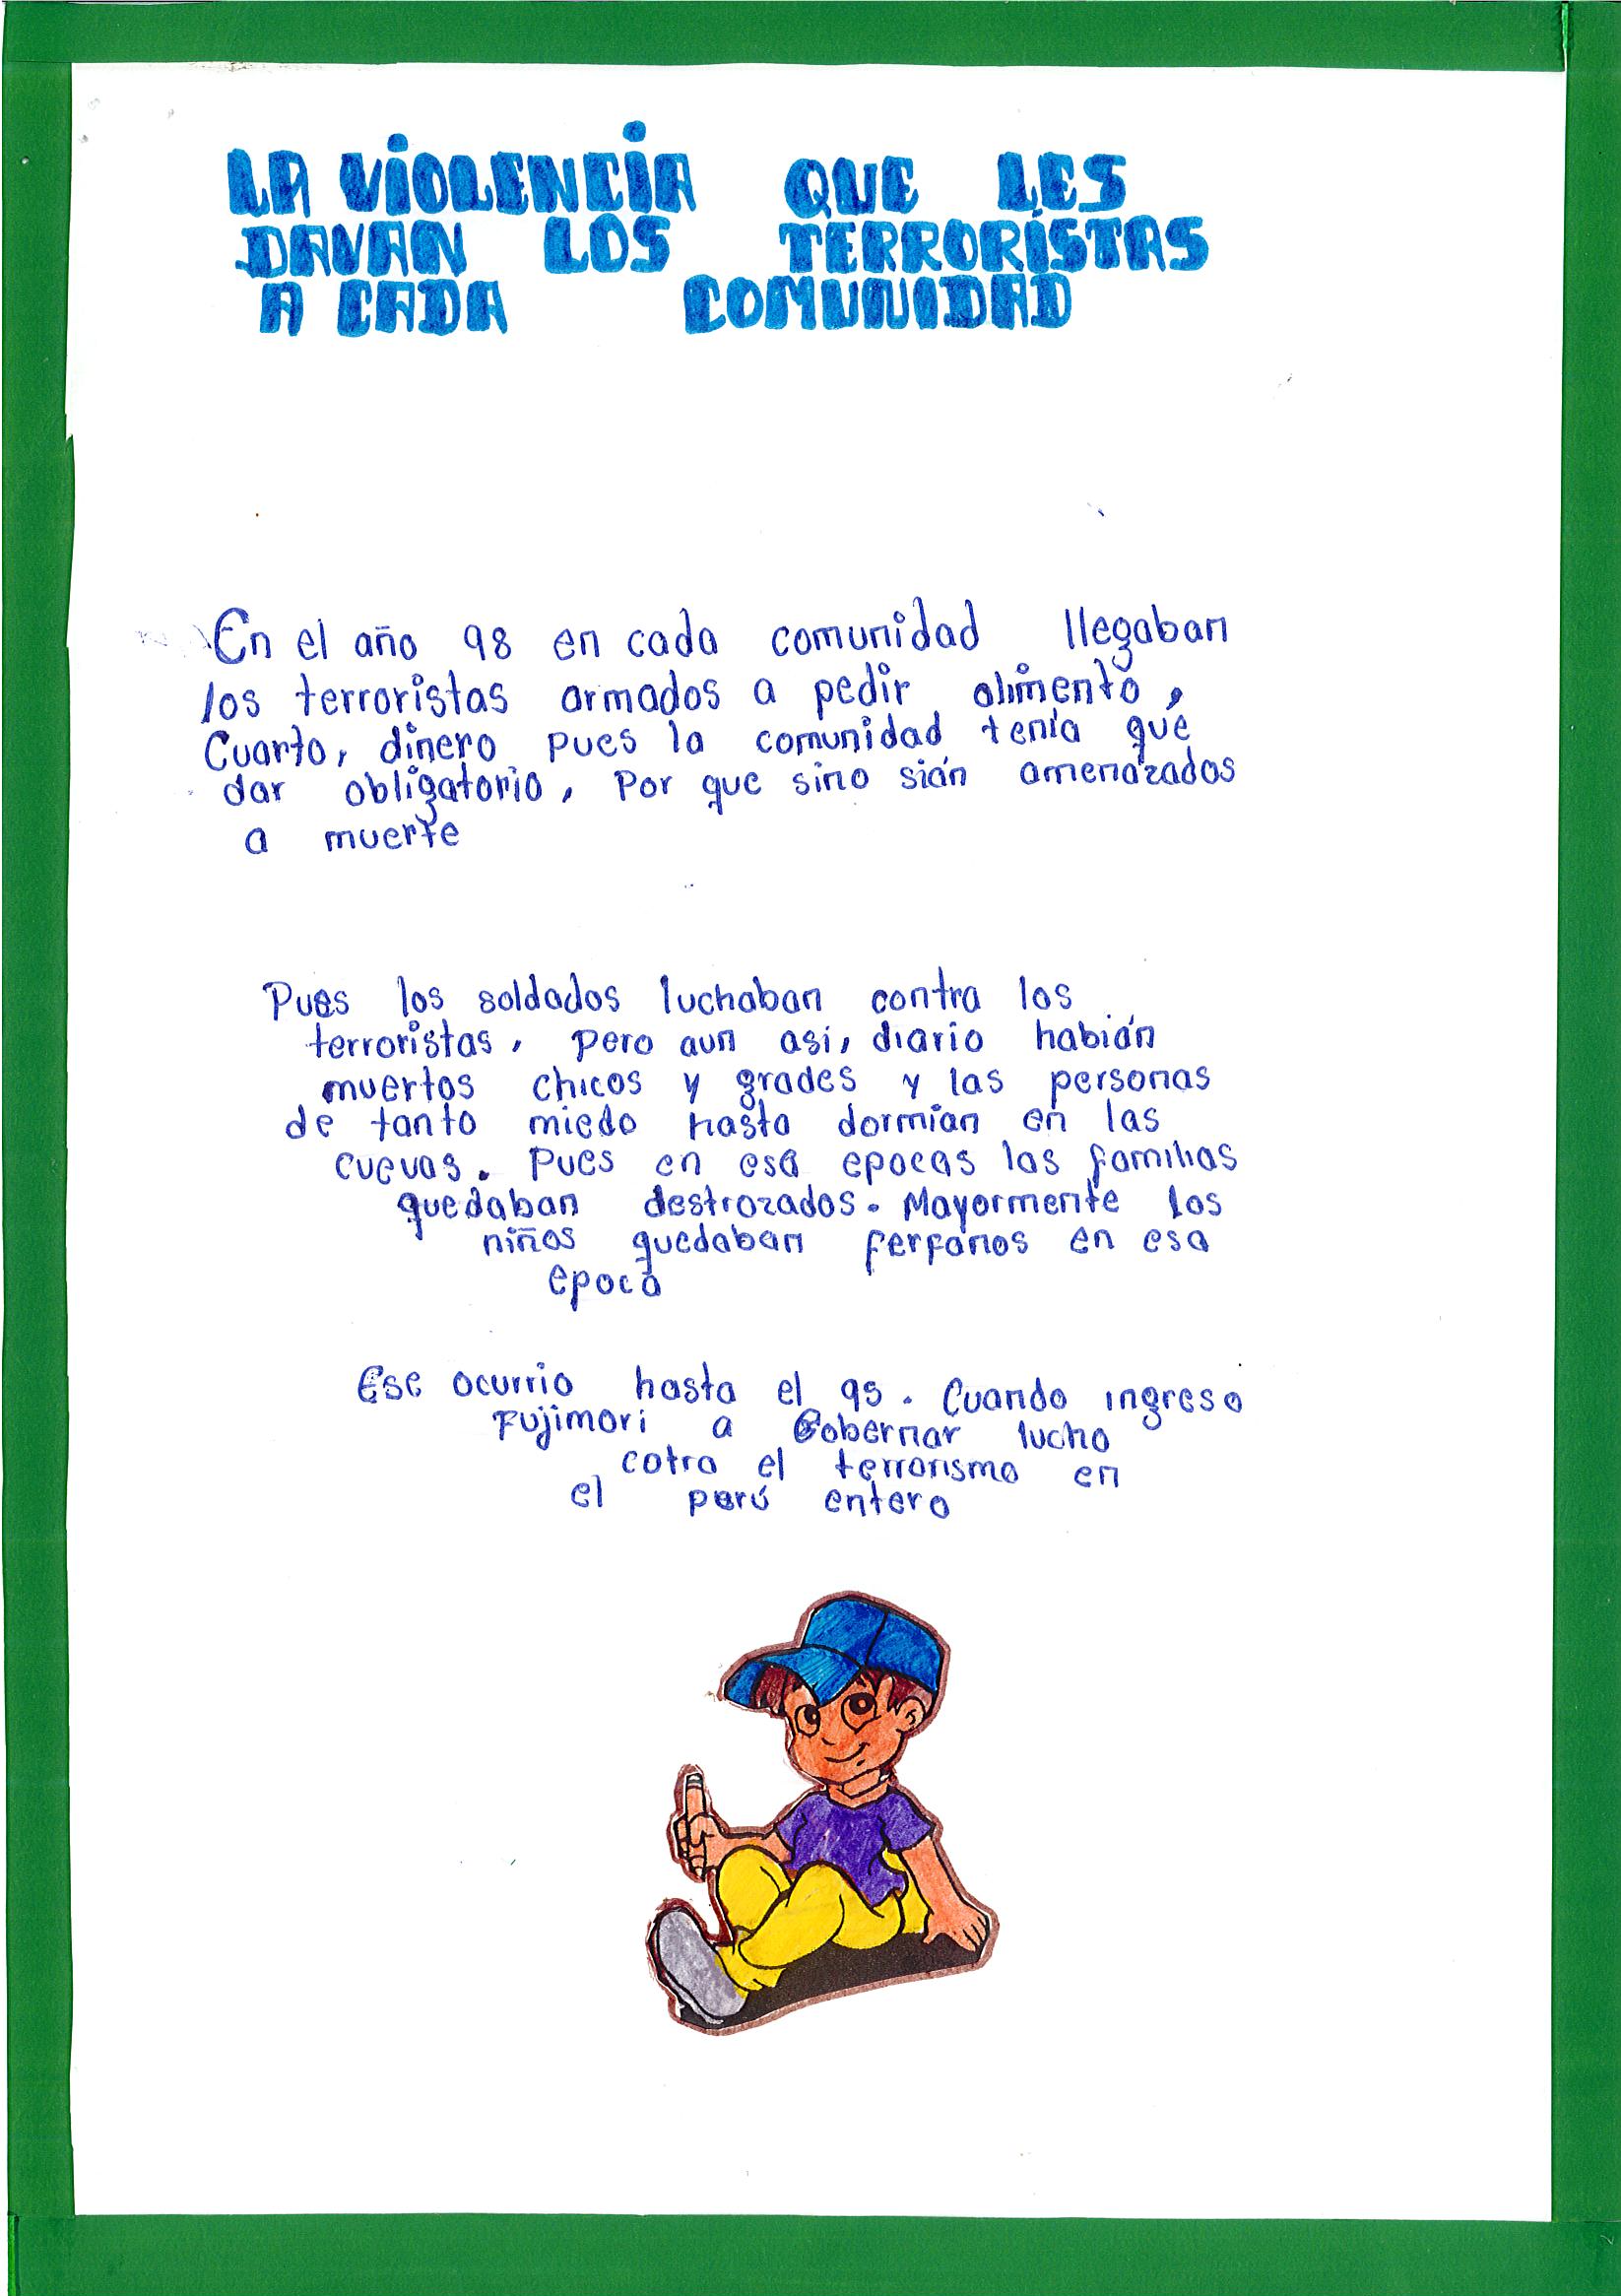 LA VIOLENCIA QUE LES
DAVAN LOS TERRORISTAS
A CADA COMUNIDAD
En el año 98 en cada comunidad llegaban
los terroristas armados a pedir alimento,
Cuarto, dinero pues la comunidad tenía que
dar obligatorio, Por que sino sián amenazados
a muerte
Pues los soldados luchaban contra los
terroristas, pero aun así, diario habián
muertos chicos y grades y las personas
de tanto miedo hasta dormian en las
cuevas. Pues en esa epocas las familias
quedaban destrozados. Mayormente los
niños quedaban ferfanos en esa
epoca
Ese ocurrio hasta el 95. Cuando ingreso
Fujimori a Gobernar lucho
cotra el terrorismo en
el perú entero